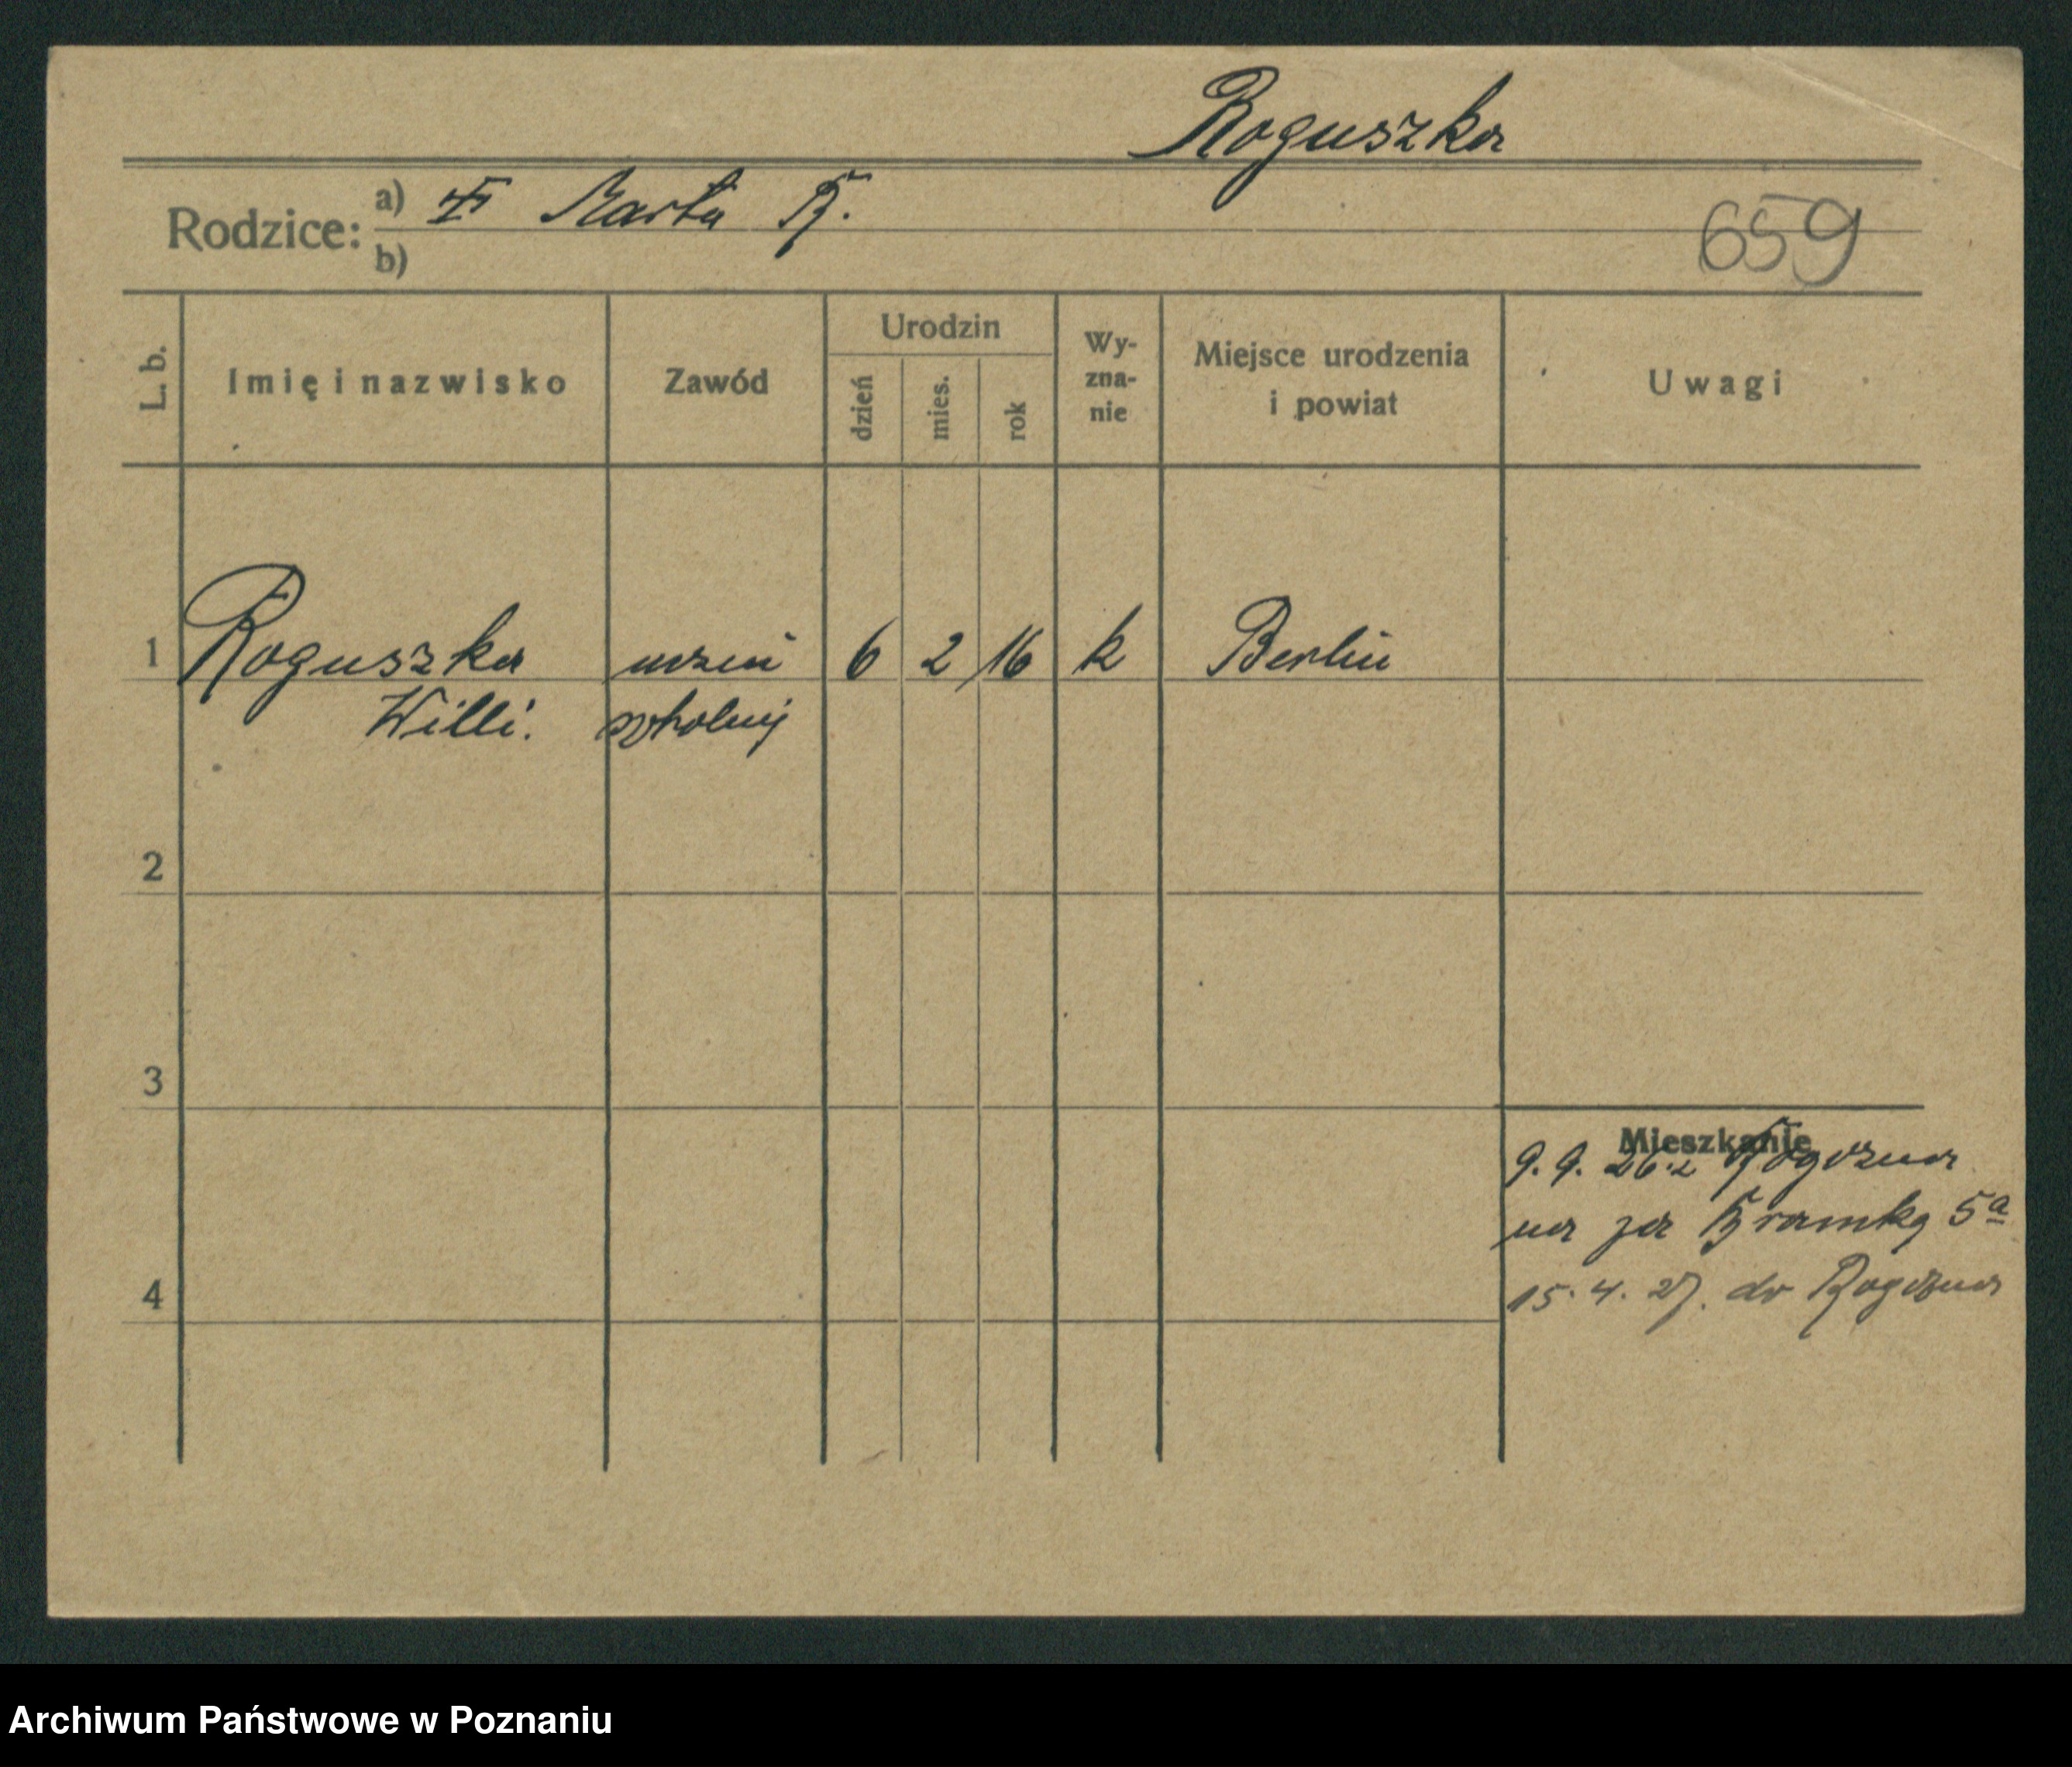 Roguszka
Rodzice: a) Marta R.
b)
659
L. b. Imię i nazwisko Zawód Urodzin dzień mies. rok Wy-zna-nie Miejsce urodzenia i powiat Uwagi
1 Roguszka uczeń 6 2 16 k Berlin
Willi. szkolnij
2
3
Mieszkanie
9.9.26. z Rogoźna
na za Bramką 5a
15.4.27. do Rogoźna
4
Archiwum Państwowe w Poznaniu